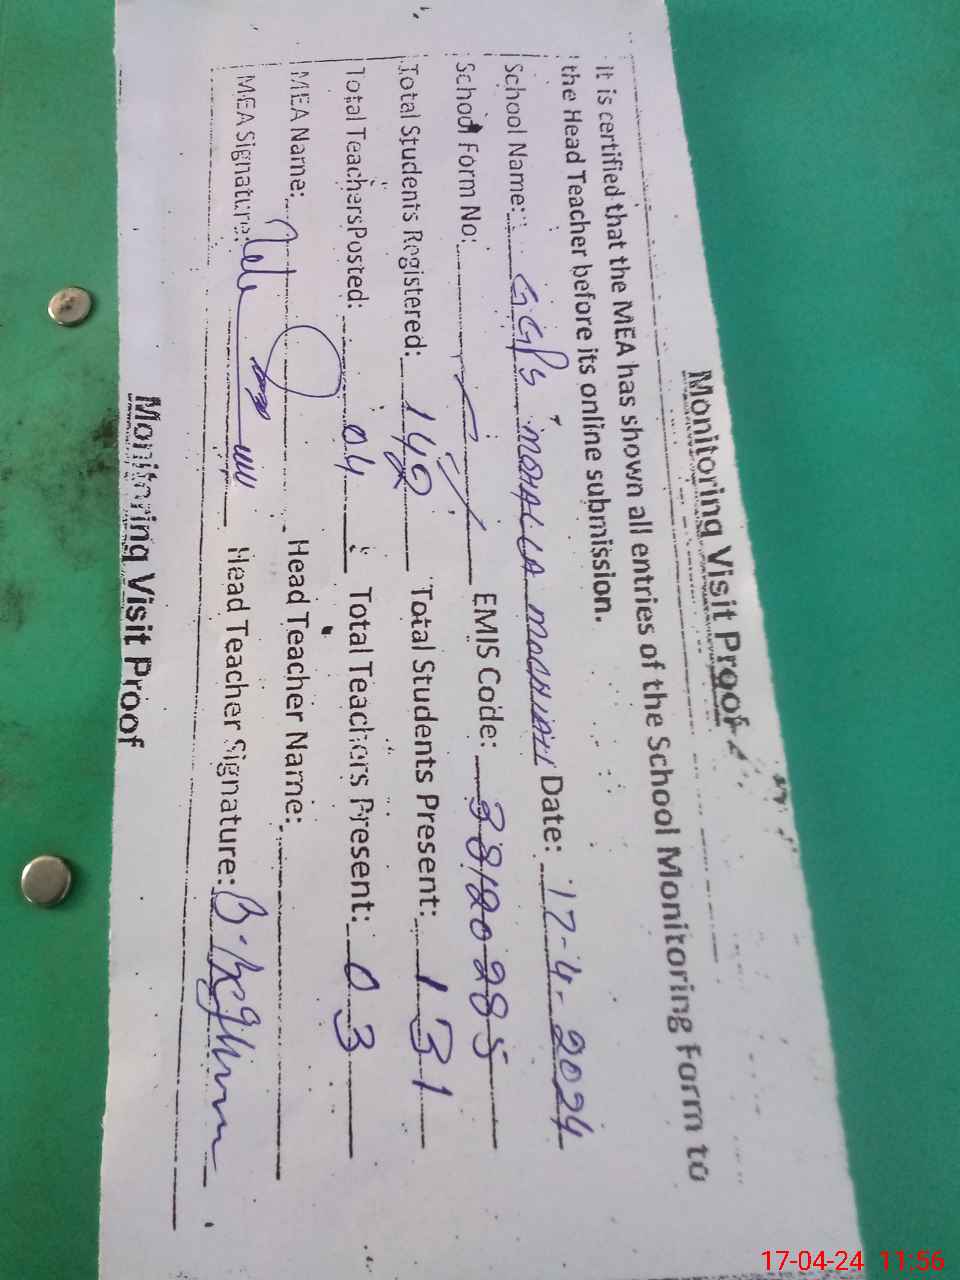 Monitoring Visit Proof
It is certified that the MEA has shown all entries of the School Monitoring Form to
the Head Teacher before its online submission.
School Name: GGPS MOHALLA MOCHIAN Date: 17-4-2024
School Form No: EMIS Code: 38120285
Total Students Registered: 142 Total Students Present: 131
Total Teachers Posted: 04 Total Teachers Present: 03
MEA Name: Head Teacher Name:
MEA Signature: Head Teacher Signature:
Monitoring Visit Proof
17-04-24 11:56